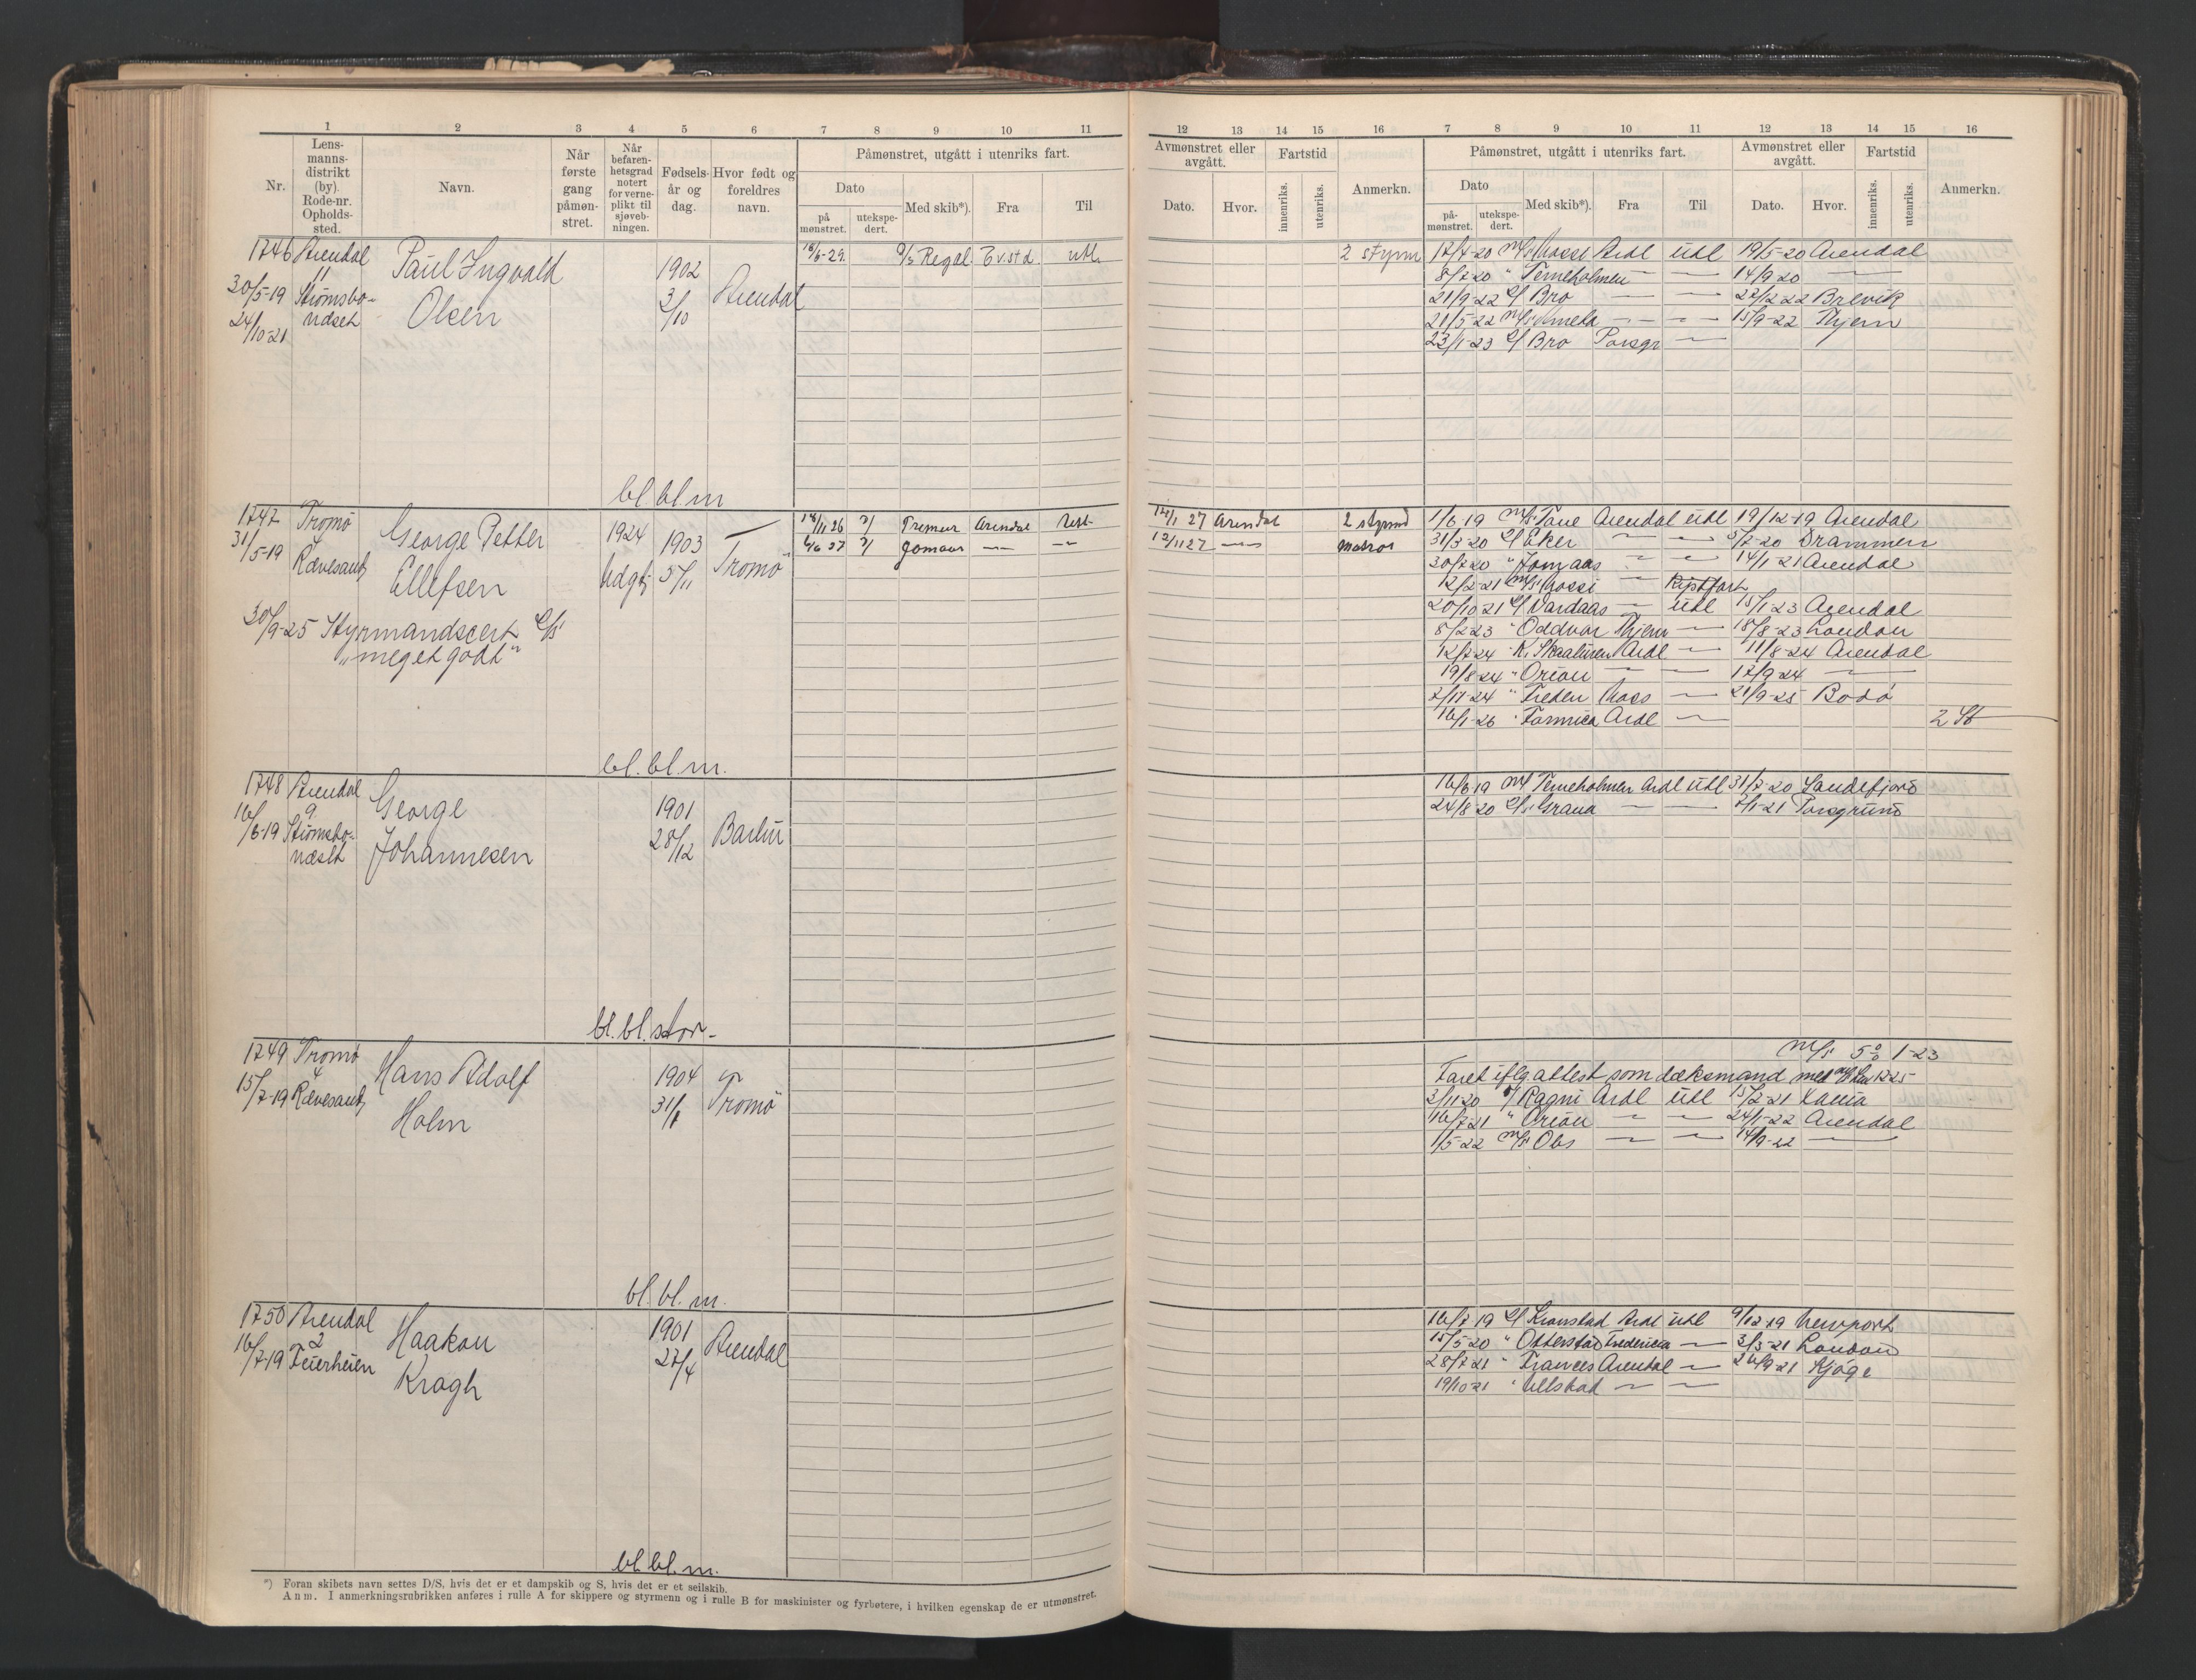 1 2 3 4 5 6 7 8 9 10 11
Nr.
Lens-
manns-
distrikt
(by).
Rode-nr.
Opholds-
sted.
Navn.
Når
første
gang
påmøn-
stret.
Når
befaren-
hetsgrad
notert
for verne-
plikt til
sjøveb-
ningen.
Fødsels-
år og
dag.
Hvor født og
foreldres
navn.
Påmønstret, utgått i utenriks fart.
Dato
på
mønstret.
utekspe-
dert.
Med skib*).
Fra
Til
12 13 14 15 16 7 8 9 10 11 12 13 14 15 16
Avmønstret eller
avgått.
Dato.
Hvor.
Fartstid
innenriks.
utenriks.
Anmerkn.
Påmønstret, utgått i utenriks fart.
Dato
på-
mønstret.
utekspe-
dert.
Med skib*).
Fra
Til
Avmønstret eller
avgått.
Dato.
Hvor.
Fartstid
innenriks.
utenriks.
Anmerkn.
1746 Arendal
11
30/5-19 Strømsbo-
24/10-21 undset
Paul Ingvald
Olsen
1902
3/10
Arendal
bl. bl. m
18/6-29. D/s Regal utl.
2 styrm
17/4-20 M/s Mossi Ardl Utl 19/5-20 Arendal
8/7-20 " Terneholmen — — 14/9-20 —
21/9-22 D/ Bro — — 22/12-22 Brevik
21/5-22 — — 15/9-22
23/1-23 D/ Bro Porsgr —
1747 Tromø
31/5-19 Rævesand,
George Petter
Ellefsen
1924
Udgtj
1903
5/11
Tromø
30/9-25 Styrmandscert D/s
"meget godt"
bl. bl. m.
18/11 26 D/ Arendal Utl.
6/6 27 D/ Jomaas — —
14/1 27 Arendal 2 styrmd
12/11 27 — Matros
1/6 19 Arendal Utl 19/12-19 Arendal
31/3-20 D/ Eker — — 5/7-20 Drammen
30/7-20 " Jomaas — — 14/1-21 Arendal
12/2-21 M/s Mossi — Kystfart
20/10-21 D/ Vardaas — Utl 15/1-23 Arendal
8/2-23 " Oddvar — 18/8-23 London
12/7-24 Ardl — 11/8-24 Arendal
19/8-24 " Orion — — 17/9-24 —
7/11-24 " Moss — 21/9-25 Bodø
16/1-26 " Formica Ardl — 2 St
1748 Arendal
9
16/6-19 Strømsbo-
næslt
George
Johannesen
1901
28/12
Barbu
bl. bl. stor.
16/6 19 M/ Terneholmen Ardl Utl 31/7-20 Sandefjord
24/8 20 D/s Grana — — 7/1-21 Porsgrund
1749 Tromø
4
15/7-19 Rævesand,
Hans Adolf
Holm
1904
31/1
Tromø
bl. bl. m.
1-23
Faret iflg attest som dæksmand med
3/11 20 D/ Ragni Ardl Utl 15/2-21
16/7-21 " Orion — — 24/1-22 Arendal
1/5-22 M/s Obs — — 14/9-22 —
1750 Arendal
2
16/7-19 Feierheien
Haakon
Kragh
1901
27/4
Arendal
bl. bl. m.
16/7 19 D/ Kronstad Ardl Utl 9/12 19 Newport
15/5-20 " Otterstad Fredericia — 3/3-21 London
28/7 21 " Frances Arendal — 26/9-21 Kjøge
19/10-21 " Ullstad — —
*) Foran skibets navn settes D/S, hvis det er et dampskib og S, hvis det er et seilskib.
Anm. I anmerkningsrubrikken anføres i rulle A for skippere og styrmenn og i rulle B for maskinister og fyrbøtere, i hvilken egenskap de er utmønstret.